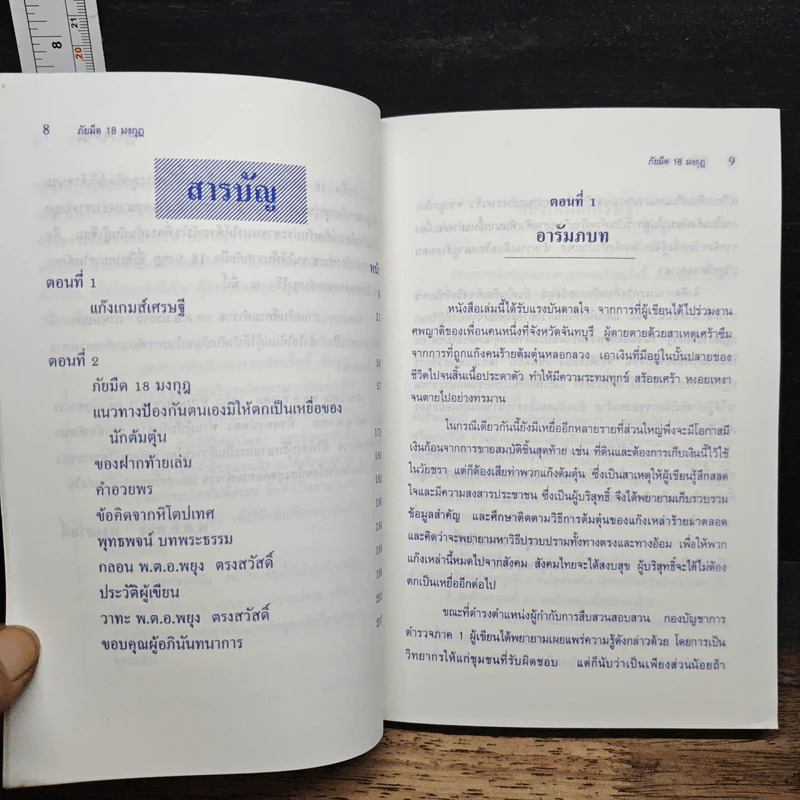 8
21
20
8 ภัยมืด 18 มงกุฎ
สารบัญ
หน้า
ตอนที่ 1
แก๊งเกมส์เศรษฐี
ตอนที่ 2
ภัยมืด 18 มงกุฎ
แนวทางป้องกันตนเองมิให้ตกเป็นเหยื่อของ
นักต้มตุ๋น
ของฝากท้ายเล่ม
คำอวยพร
ข้อคิดจากหิโตปเทศ
พุทธพจน์ บทพระธรรม
กลอน พ.ต.อ.พยุง ตรงสวัสดิ์
ประวัติผู้เขียน
วาทะ พ.ต.อ.พยุง ตรงสวัสดิ์
ขอบคุณผู้อภินันทนาการ
ภัยมืด 18 มงกุฎ 9
ตอนที่ 1
อารัมภบท
หนังสือเล่มนี้ได้รับแรงบันดาลใจ จากการที่ผู้เขียนได้ไปร่วมงาน
ศพญาติของเพื่อนคนหนึ่งที่จังหวัดจันทบุรี ผู้ตายตายด้วยสาเหตุเศร้าซึม
จากการที่ถูกแก๊งคนร้ายต้มตุ๋นหลอกลวง เอาเงินที่มีอยู่ในบั้นปลายของ
ชีวิตไปจนสิ้นเนื้อประดาตัว ทำให้มีความระทมทุกข์ สร้อยเศร้า หงอยเหงา
จนตายไปอย่างทรมาน
ในกรณีเดียวกันนี้ยังมีเหยื่ออีกหลายรายที่ส่วนใหญ่พึ่งจะมีโอกาสมี
เงินก้อนจากการขายสมบัติชิ้นสุดท้าย เช่น ที่ดินและต้องการเก็บเงินนี้ไว้ใช้
ในวัยชรา แต่ก็ต้องเสียท่าพวกแก๊งต้มตุ๋น ซึ่งเป็นสาเหตุให้ผู้เขียนรู้สึกสลด
ใจและมีความสงสารประชาชน ซึ่งเป็นผู้บริสุทธิ์ จึงได้พยายามเก็บรวบรวม
ข้อมูลสำคัญ และศึกษาติดตามวิธีการต้มตุ๋นของแก๊งเหล่าร้ายมาตลอด
และคิดว่าจะพยายามหาวิธีปราบปรามทั้งทางตรงและทางอ้อม เพื่อให้พวก
แก๊งเหล่านี้หมดไปจากสังคม สังคมไทยจะได้สงบสุข ผู้บริสุทธิ์จะได้ไม่ต้อง
ตกเป็นเหยื่ออีกต่อไป
ขณะที่ดำรงตำแหน่งผู้กำกับการสืบสวนสอบสวน กองบัญชาการ
ตำรวจภาค 1 ผู้เขียนได้พยายามเผยแพร่ความรู้ดังกล่าวด้วย โดยการเป็น
วิทยากรให้แก่ชุมชนที่รับผิดชอบ แต่ก็นับว่าเป็นเพียงส่วนน้อยถ้า